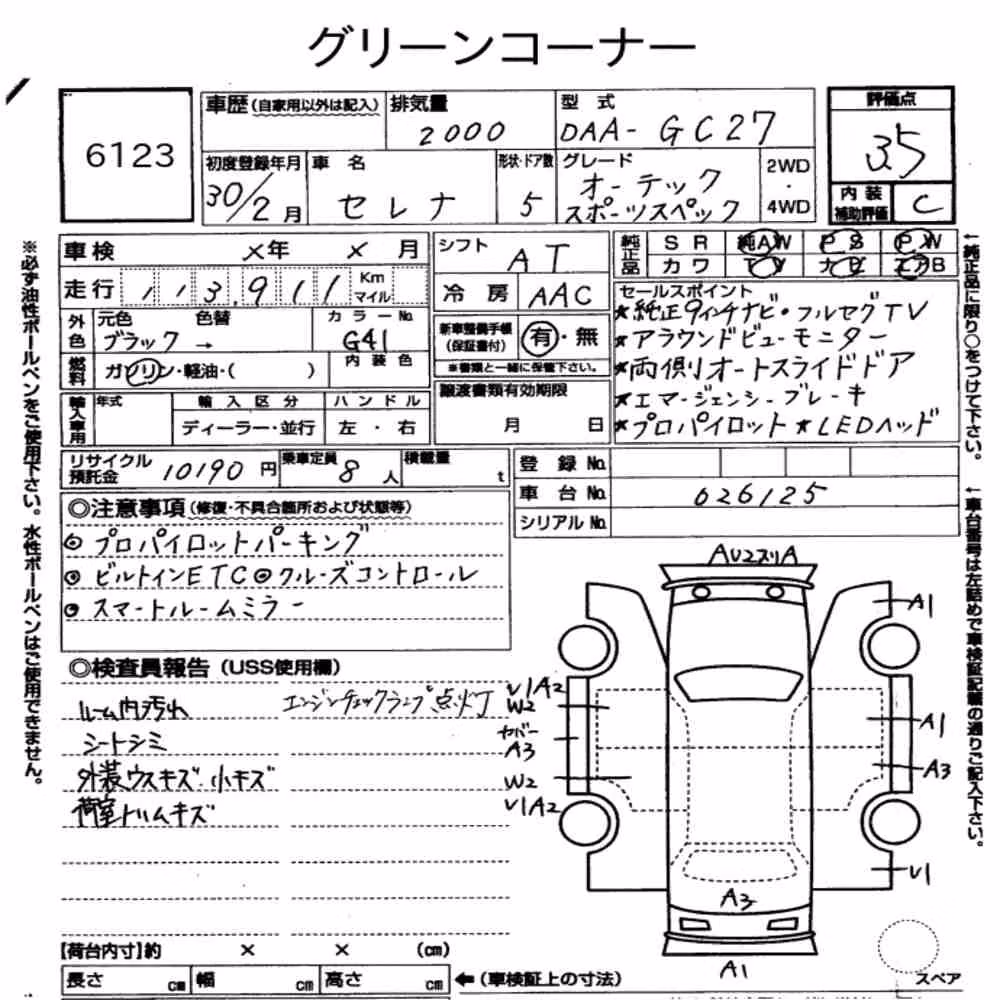 グリーンコーナー
6123
車歴(自家用以外は記入)
排気量
2000
型 式
DAA- GC27
評価点
3.5
初度登録年月
30/2月
車 名
セレナ
形状・ドア数
5
グレード
オーテック
スポーツスペック
2WD
・
4WD
内装
補助評価
C
車検 ×年 ×月
シフト
AT
純正品
SR 純AW PS PW
カワ TV ナビ エアB
走行 113,911 Km
マイル
冷房 AAC
セールスポイント
★純正9インチナビ・フルセグTV
★アラウンドビューモニター
★両側オートスライドドア
★エマージェンシーブレーキ
★プロパイロット★LEDヘッド
外色
元色 色替 カラーNo.
ブラック → G41
新車整備手帳
(保証書付)
有・無
※書類と一緒に保管下さい。
燃料
ガソリン・軽油・( )
内装色
譲渡書類有効期限
月 日
輸入車用
年式
輸入区分
ハンドル
ディーラー・並行
左・右
リサイクル
預託金 10190円
乗車定員 8人
積載量 t
登録No.
車台No. 026125
シリアルNo.
◎注意事項(修復・不具合箇所および状態等)
◎プロパイロットパーキング
◎ビルトインETC◎クルーズコントロール
◎スマートルームミラー
◎検査員報告(USS使用欄)
ルーム内汚れ
エンジンチェックランプ点灯
シートシミ
外装ウスキズ・小キズ
荷室トリムキズ
AU2スリA
A1
U1A2
W2
カバー
A3
W2
U1A2
A1
A3
U1
A3
A1
スペア
【荷台内寸】約 × × (cm)
長さ cm 幅 cm 高さ cm
←(車検証上の寸法)
※必ず油性ボールペンをご使用下さい。水性ボールペンはご使用できません。
←純正品に限り○をつけて下さい。
←車台番号は左詰めで車検証記載の通りご記入下さい。